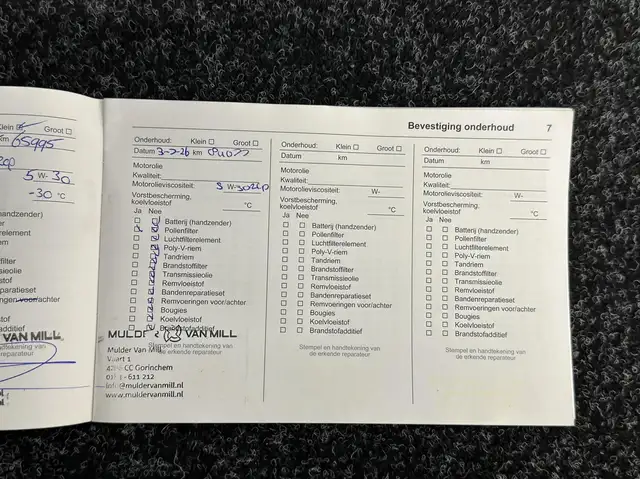 Klein
Groot
km 65995
5 W- 30
-30 °C
(handzender)
filter
erelement
em
filter
ssieolie
eistof
eparatieset
ngen voor/achter
eistof
fadditief
VAN MILL
handtekening van
reparateur
Bevestiging onderhoud 7
Onderhoud: Klein Groot
Datum 3-2-26 km
Motorolie
Kwaliteit:
Motorolieviscositeit: 5 W-30
Vorstbescherming,
koelvloeistof °C
Ja Nee
Batterij (handzender)
Pollenfilter
Luchtfilterelement
Poly-V-riem
Tandriem
Brandstoffilter
Transmissieolie
Remvloeistof
Bandenreparatieset
Remvoeringen voor/achter
Bougies
Koelvloeistof
Brandstofadditief
MULDER VAN MILL
Stempel en handtekening van
de erkende reparateur
Mulder Van Mill
Vaart 1
CC Gorinchem
611 212
info@muldervanmill.nl
www.muldervanmill.nl
Onderhoud: Klein Groot
Datum km
Motorolie
Kwaliteit:
Motorolieviscositeit: W-
Vorstbescherming,
koelvloeistof °C
Ja Nee
Batterij (handzender)
Pollenfilter
Luchtfilterelement
Poly-V-riem
Tandriem
Brandstoffilter
Transmissieolie
Remvloeistof
Bandenreparatieset
Remvoeringen voor/achter
Bougies
Koelvloeistof
Brandstofadditief
Stempel en handtekening van
de erkende reparateur
Onderhoud: Klein Groot
Datum km
Motorolie
Kwaliteit:
Motorolieviscositeit: W-
Vorstbescherming,
koelvloeistof °C
Ja Nee
Batterij (handzender)
Pollenfilter
Luchtfilterelement
Poly-V-riem
Tandriem
Brandstoffilter
Transmissieolie
Remvloeistof
Bandenreparatieset
Remvoeringen voor/achter
Bougies
Koelvloeistof
Brandstofadditief
Stempel en handtekening van
de erkende reparateur